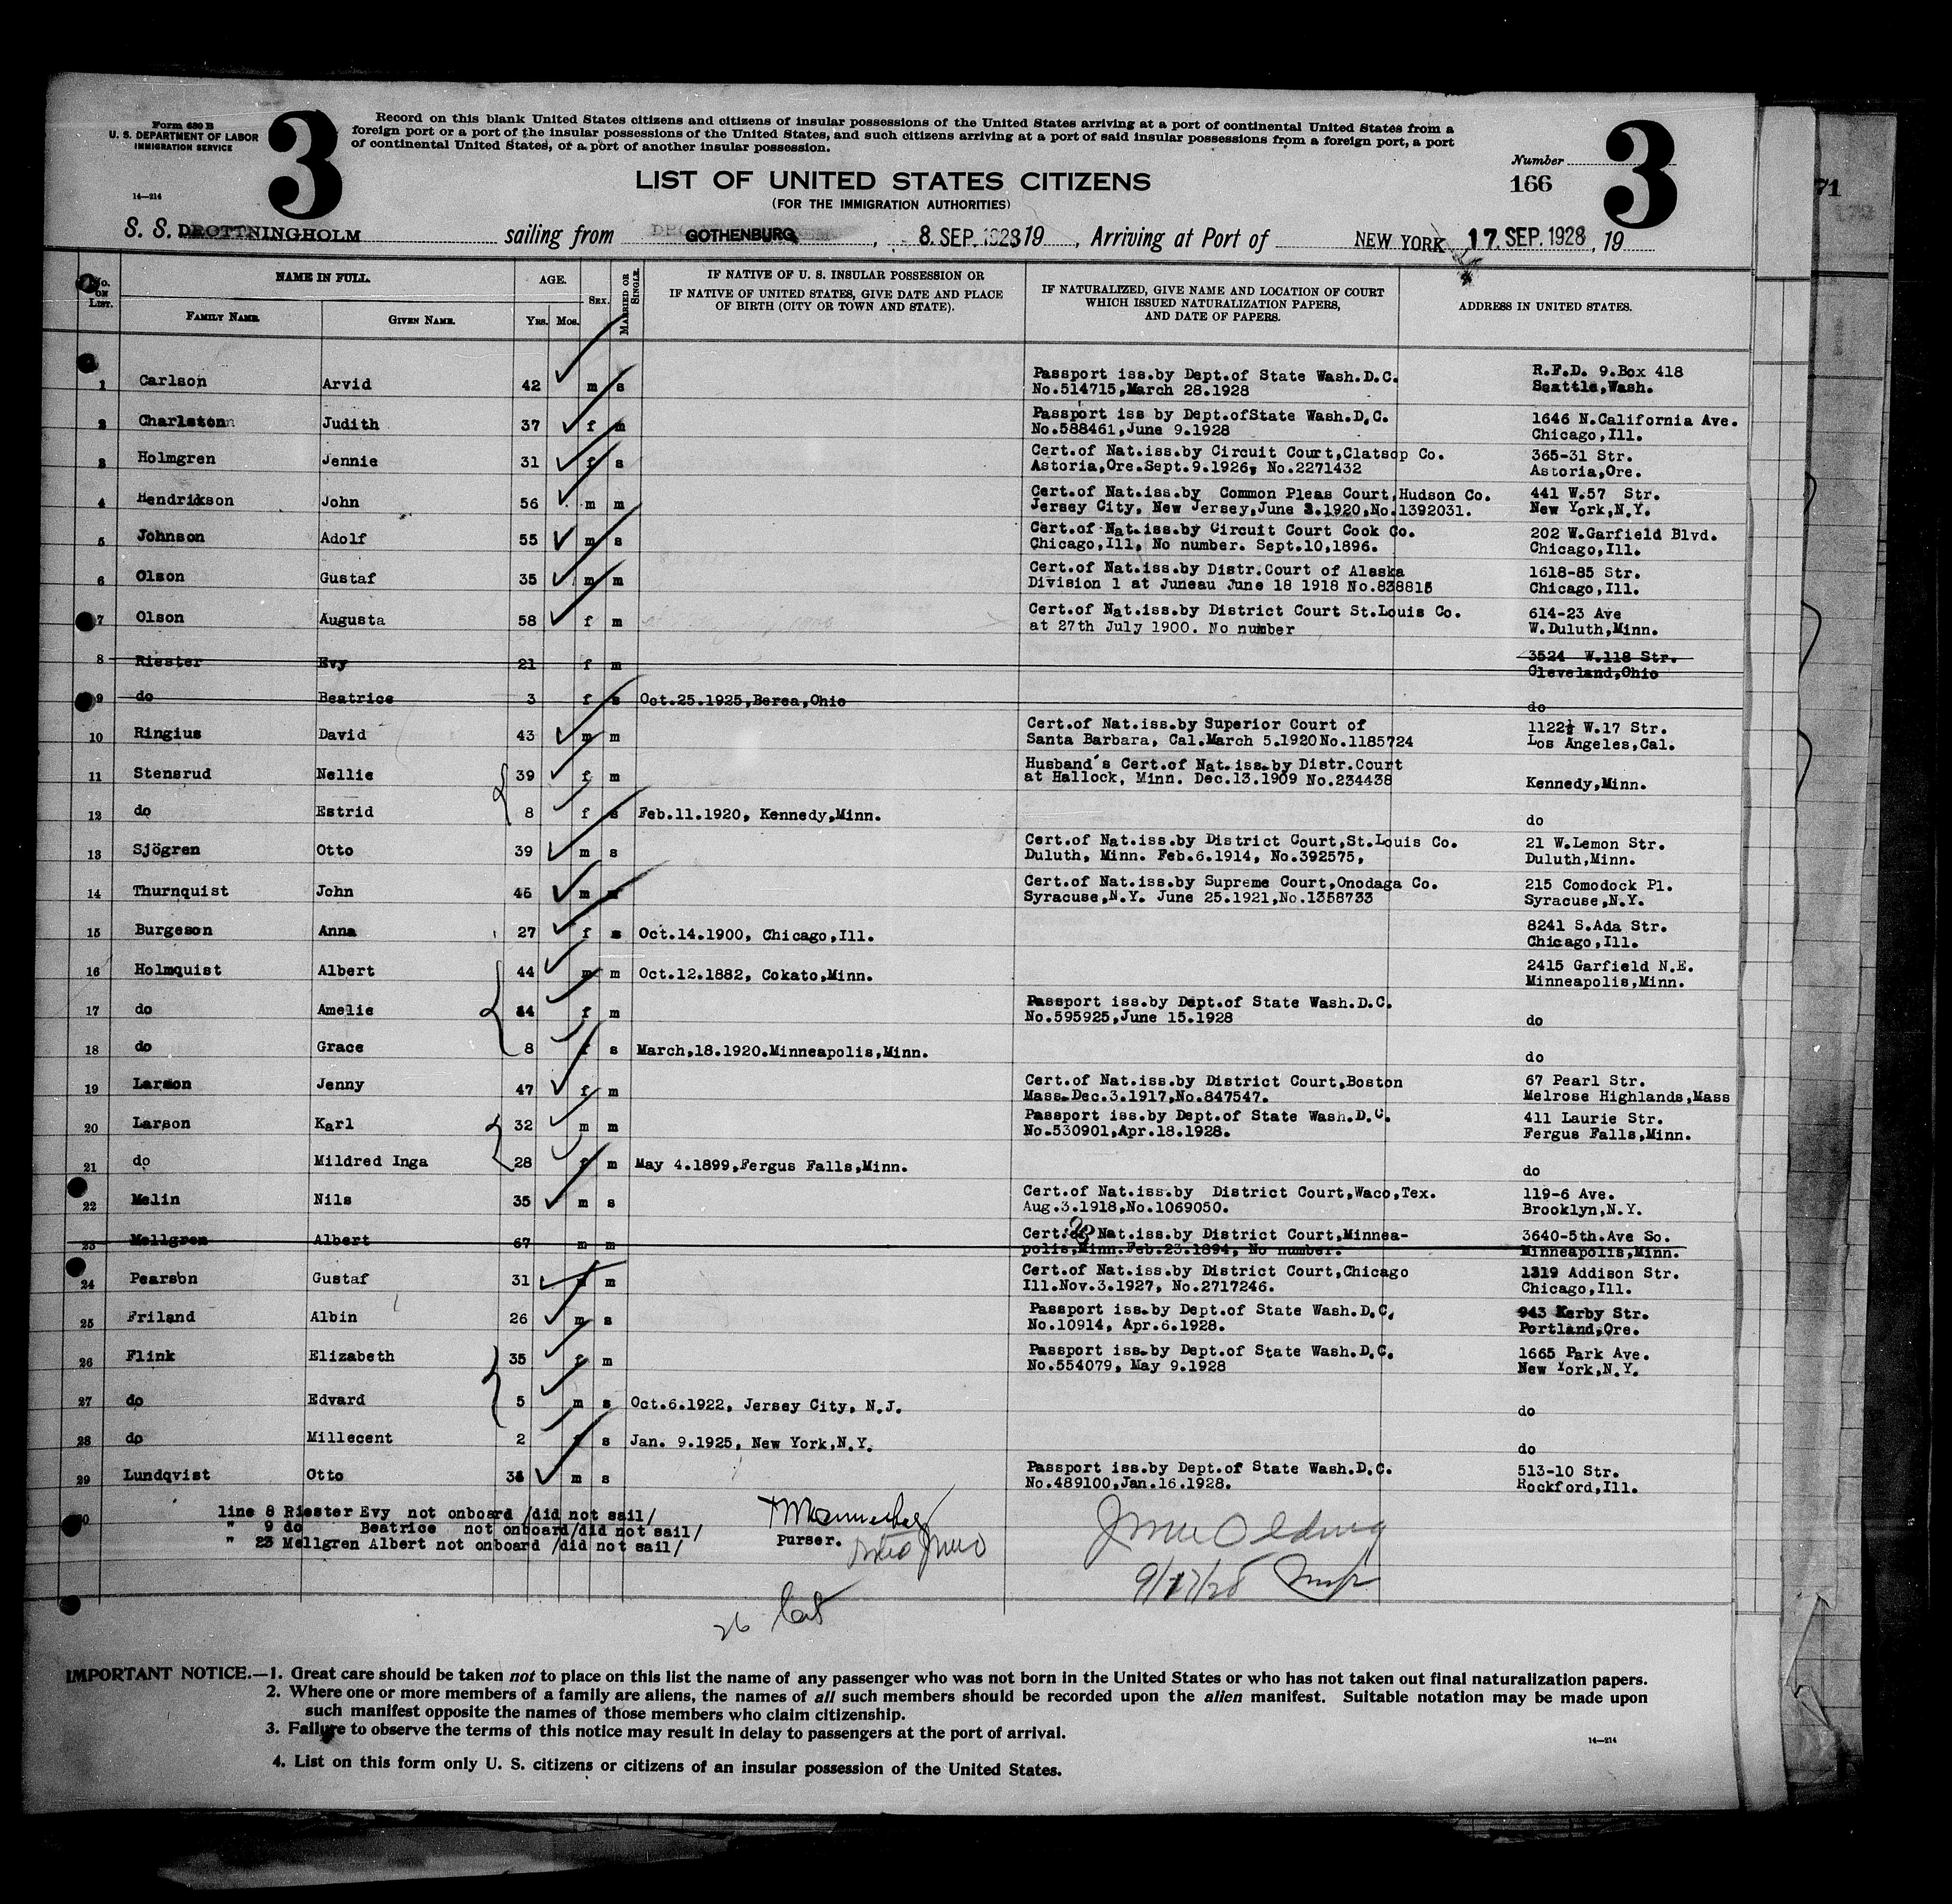 Form 630 B
U. S. DEPARTMENT OF LABOR
IMMIGRATION SERVICE
14—214
3
Record on this blank United States citizens and citizens of insular possessions of the United States arriving at a port of continental United States from a
foreign port or a port of the insular possessions of the United States, and such citizens arriving at a port of said insular possessions from a foreign port, a port
of continental United States, or a port of another insular possession.
Number
166
3
71
LIST OF UNITED STATES CITIZENS
(FOR THE IMMIGRATION AUTHORITIES)
S. S. DROTTNINGHOLM sailing from GOTHENBURG, 8. SEP. 1928 19, Arriving at Port of NEW YORK 17. SEP. 1928, 19
No. ON LIST.
NAME IN FULL.
FAMILY NAME. GIVEN NAME.
AGE.
YRS. MOS.
SEX.
MARRIED OR SINGLE.
IF NATIVE OF U. S. INSULAR POSSESSION OR
IF NATIVE OF UNITED STATES, GIVE DATE AND PLACE
OF BIRTH (CITY OR TOWN AND STATE).
IF NATURALIZED, GIVE NAME AND LOCATION OF COURT
WHICH ISSUED NATURALIZATION PAPERS,
AND DATE OF PAPERS.
ADDRESS IN UNITED STATES.
1 Carlson Arvid 42 m s Passport iss.by Dept.of State Wash.D.C. R.F.D. 9.Box 418
No.514715,March 28.1928 Seattle,Wash.
2 Charlston Judith 37 f m Passport iss by Dept.ofState Wash.D,C. 1646 N.California Ave.
No.588461,June 9.1928 Chicago,Ill.
3 Holmgren Jennie 31 f s Cert.of Nat.iss.by Circuit Court,Clatsop Co. 365-31 Str.
Astoria,Ore.Sept.9.1926, No.2271432 Astoria,Ore.
4 Hendrikson John 56 m m Cert.of Nat.iss.by Common Pleas Court,Hudson Co. 441 W.57 Str.
Jersey City, New Jersey,June 3.1920,No.1392031. New York,N.Y.
5 Johnson Adolf 55 m s Cert.of Nat.iss.by Circuit Court Cook Co. 202 W.Garfield Blvd.
Chicago,Ill, No number. Sept.10,1896. Chicago,Ill.
6 Olson Gustaf 35 m m Cert.of Nat.iss.by Distr.Court of Alaska 1618-85 Str.
Division 1 at Juneau June 18 1918 No.838815 Chicago,Ill.
7 Olson Augusta 58 f m Cert.of Nat.iss.by District Court St.Louis Co. 614-23 Ave
at 27th July 1900. No number W.Duluth,Minn.
8 Riester Evy 21 f m 3524 W.118 Str.
Cleveland,Ohio
9 do Beatrice 3 f s Oct.25.1925,Berea,Ohio do
10 Ringius David 43 m m Cert.of Nat.iss.by Superior Court of 1122½ W.17 Str.
Santa Barbara, Cal.March 5.1920 No.1185724 Los Angeles,Cal.
11 Stensrud Nellie 39 f m Husband's Cert.of Nat.iss.by Distr.Court
at Hallock, Minn. Dec.13.1909 No.234438 Kennedy,Minn.
12 do Estrid 8 f s Feb.11.1920, Kennedy,Minn. do
13 Sjögren Otto 39 m s Cert.of Nat.iss.by District Court,St.Louis Co. 21 W.Lemon Str.
Duluth, Minn. Feb.6.1914, No.392575, Duluth,Minn.
14 Thurnquist John 46 m m Cert.of Nat.iss.by Supreme Court,Onodaga Co. 215 Comodock Pl.
Syracuse,N.Y. June 25.1921,No.1358733 Syracuse,N.Y.
15 Burgeson Anna 27 f s Oct.14.1900, Chicago,Ill. 8241 S.Ada Str.
Chicago,Ill.
16 Holmquist Albert 44 m m Oct.12.1882, Cokato,Minn. 2415 Garfield N.E.
Minneapolis,Minn.
17 do Amelie f m Passport iss.by Dept.of State Wash.D.C.
No.595925,June 15.1928 do
18 do Grace 8 f s March,18.1920.Minneapolis,Minn. do
19 Larson Jenny 47 f m Cert.of Nat.iss.by District Court,Boston 67 Pearl Str.
Mass.Dec.3.1917,No.847547. Melrose Highlands,Mass
20 Larson Karl 32 m m Passport iss.by Dept.of State Wash.D.C. 411 Laurie Str.
No.530901,Apr.18.1928. Fergus Falls,Minn.
21 do Mildred Inga 28 f m May 4.1899,Fergus Falls,Minn. do
22 Melin Nils 35 m s Cert.of Nat.iss.by District Court,Waco,Tex. 119-6 Ave.
Aug.3.1918,No.1069050. Brooklyn,N.Y.
23 Mellgren Albert 67 m m Cert.of Nat.iss.by District Court,Minnea- 3640-5th.Ave So.
polis,Minn.Feb.23.1894, No number. Minneapolis,Minn.
24 Pearson Gustaf 31 m m Cert.of Nat.iss.by District Court,Chicago 1319 Addison Str.
Ill.Nov.3.1927, No.2717246. Chicago,Ill.
25 Friland Albin 26 m s Passport iss.by Dept.of State Wash.D.C, 943 Kerby Str.
No.10914, Apr.6.1928. Portland,Ore.
26 Flink Elizabeth 35 f m Passport iss.by Dept.of State Wash.D.C. 1665 Park Ave.
No.554079, May 9.1928 New York,N.Y.
27 do Edvard 5 m s Oct.6.1922, Jersey City, N.J. do
28 do Millecent 2 f s Jan. 9.1925, New York,N.Y. do
29 Lundqvist Otto m s Passport iss.by Dept.of State Wash.D.C. 513-10 Str.
No.489100,Jan.16.1928. Rockford,Ill.
30 line 8 Riester Evy not onboard /did not sail/
" 9 do Beatrice not onboard/did not sail/
" 23 Mellgren Albert not onboard /did not sail/
Purser.
9/17/28
26
IMPORTANT NOTICE.—1. Great care should be taken not to place on this list the name of any passenger who was not born in the United States or who has not taken out final naturalization papers.
2. Where one or more members of a family are aliens, the names of all such members should be recorded upon the alien manifest. Suitable notation may be made upon
such manifest opposite the names of those members who claim citizenship.
3. Failure to observe the terms of this notice may result in delay to passengers at the port of arrival.
14—214
4. List on this form only U. S. citizens or citizens of an insular possession of the United States.